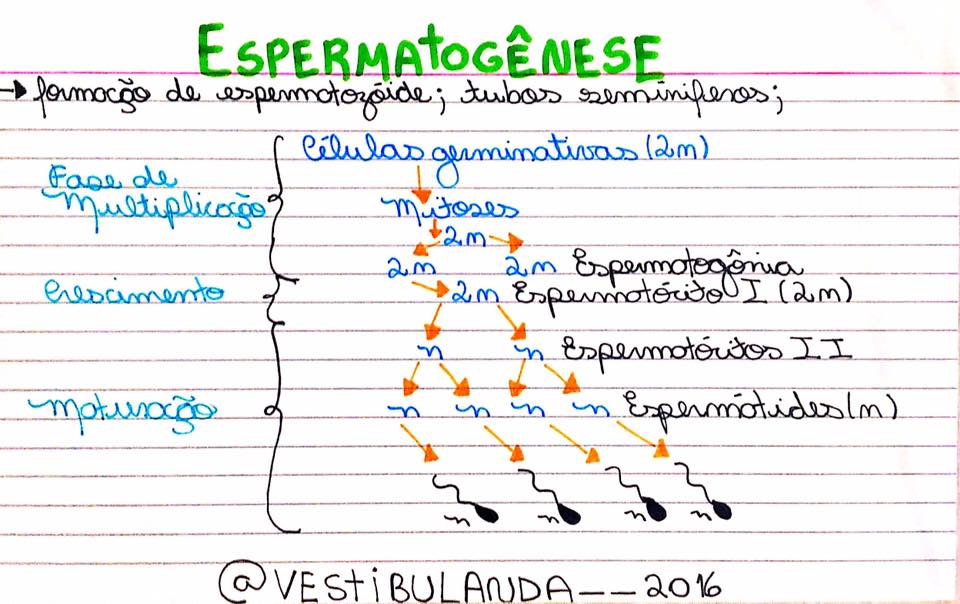 ESPERMATOGÊNESE
→ formação de espermatozóide; tubos seminíferos;
Células germinativas (2n)
Fase de
Multiplicação
Mitoses
2n
2n 2n Espermatogônia
Crescimento
2n Espermatócito I (2n)
n n Espermatócitos II
Maturação
n n n n Espermátides (n)
n n n n
@VESTIBULANDA__2016